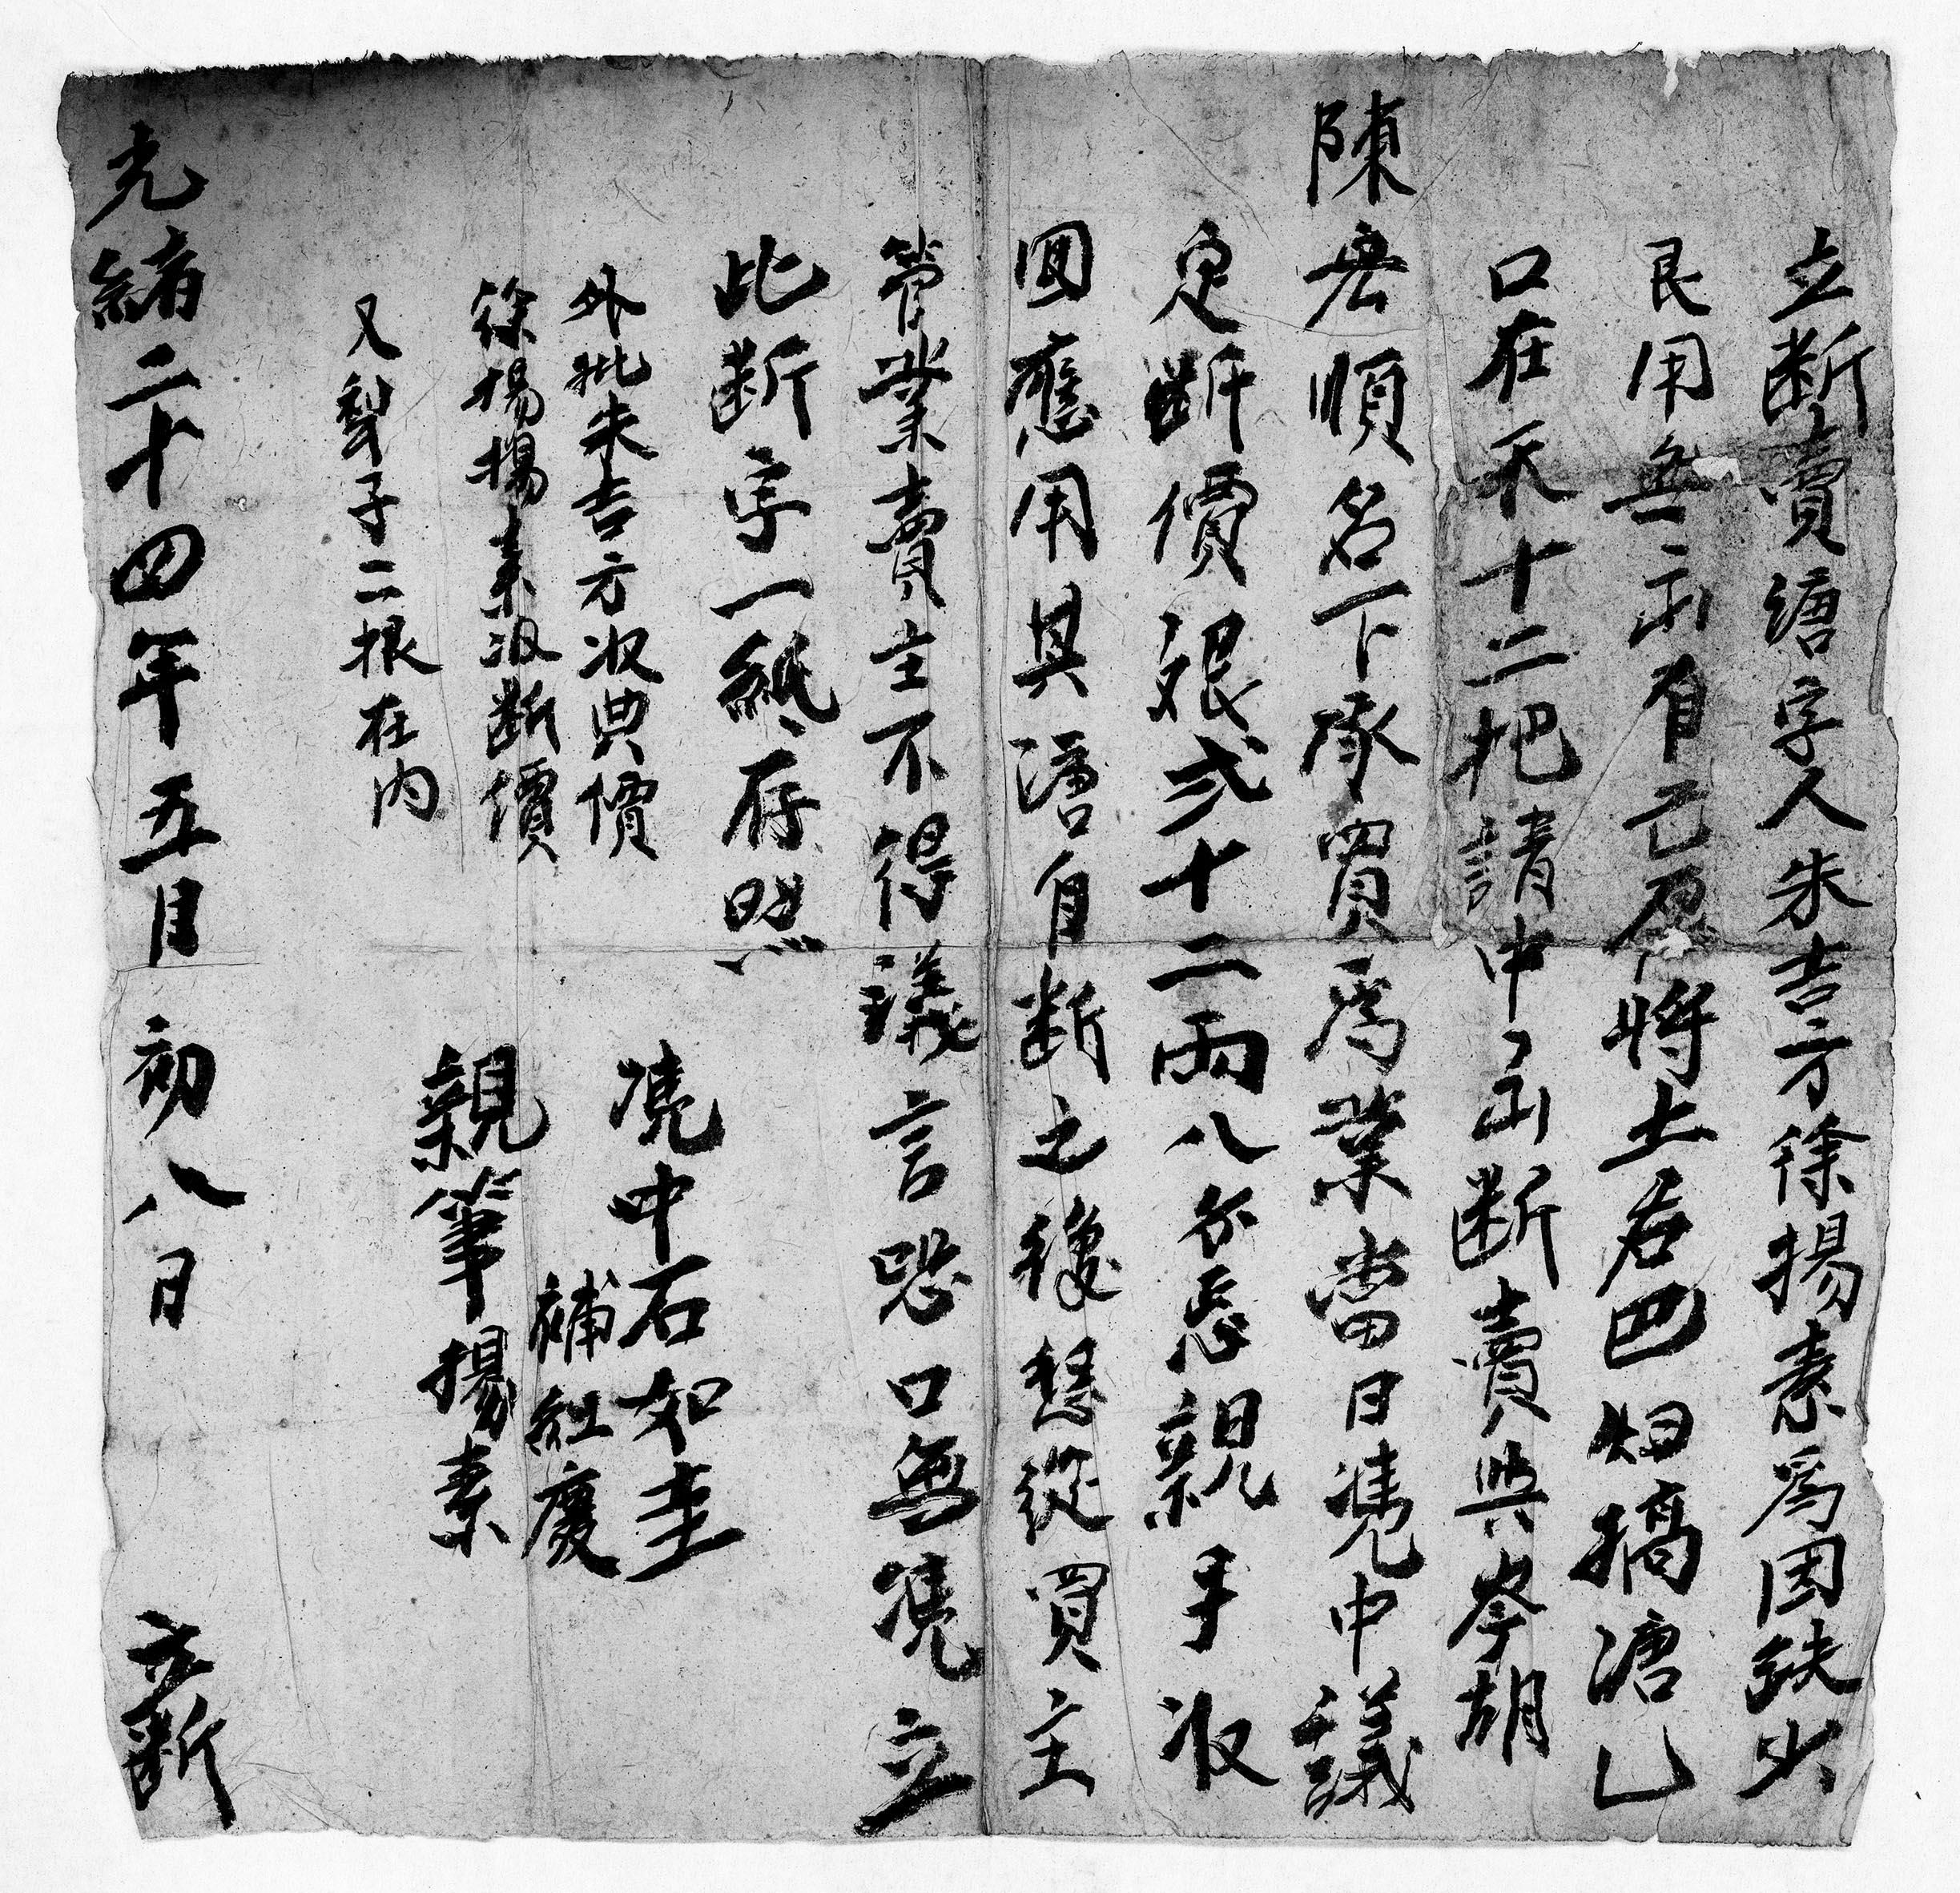 立断賣溏字人朱吉方徐揚素爲因缺少
艮用無所自己愿將土名巴妇摛溏乚
口在禾十二把請中了出断賣與岑胡
陳宏順名下承買爲業當日凴中議
定断價銀弍十二両八分忝親手收
回應用其溏自断之後慭從買主
管業賣主不得議言恐口無凴立
此断字一紙存照
外批朱吉方收典價
徐揚揚素收断價
又犁子二根在内
凴中石如圭
補紅慶
親筆揚素
光緒二十四年五月初八日 立断